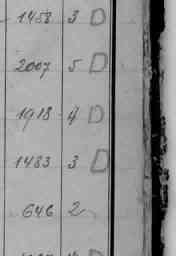 1458 3 D
2007 5 D
1918 4 D
1483 3 D
646 2